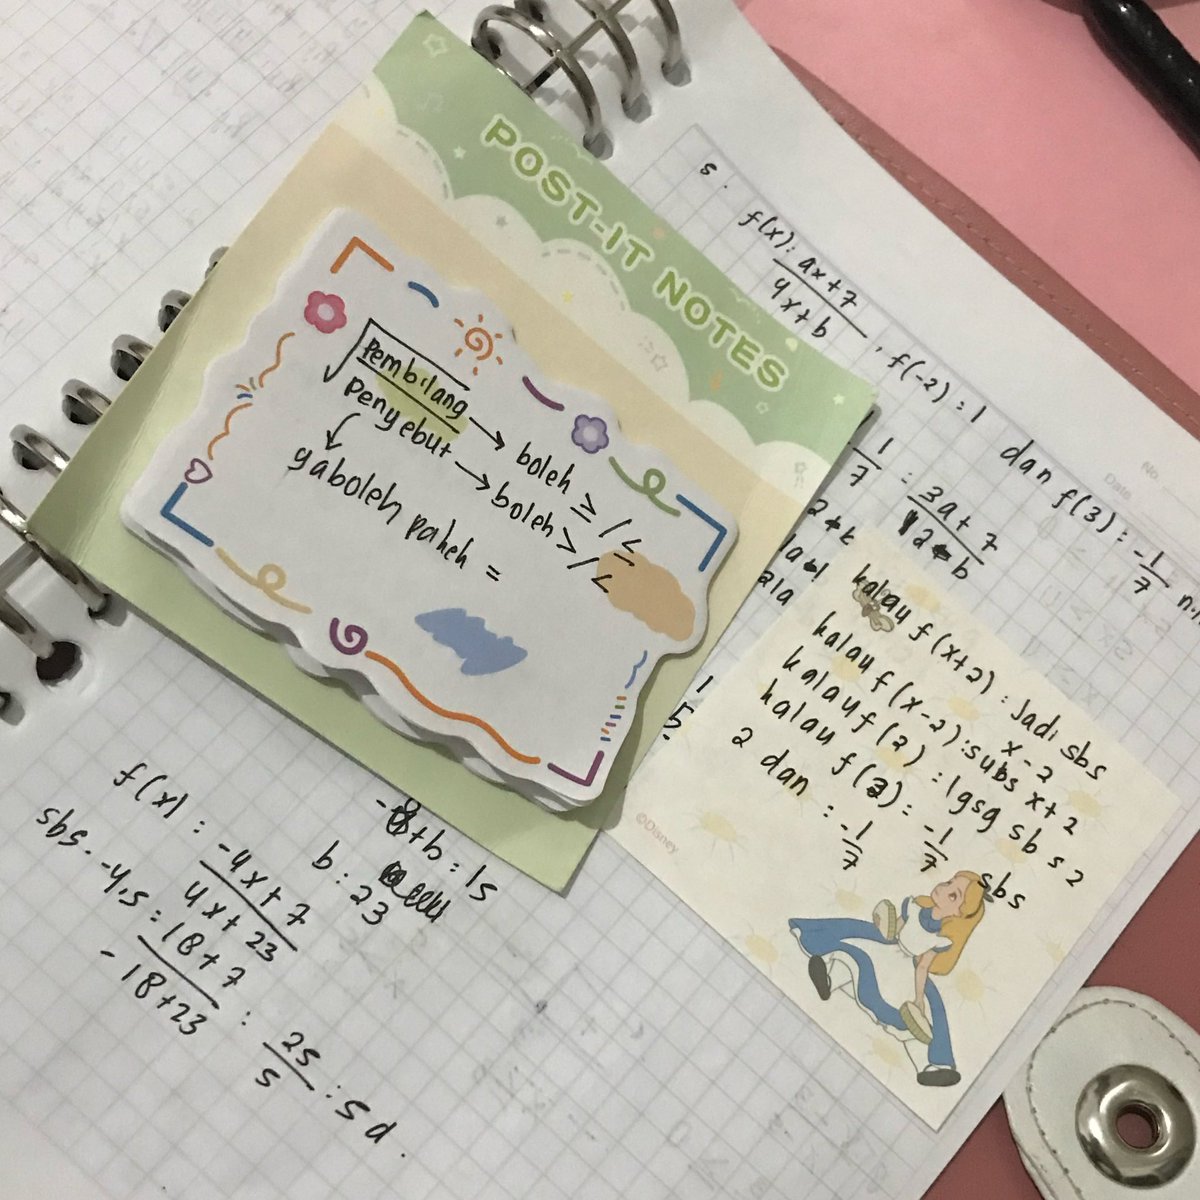 POST-IT NOTES
Pembilang → boleh ≥/≤
Penyebut → boleh >/<
↙
gaboleh pakek =
5.
f(x) : ax+7
4x+b , f(-2) : 1 dan f(3) : -1/7
1/7 : 3a+7
No.
Date
kalau f(x+2) : Jadi sbs
x-2
kalau f(x-2) : subs x+2
kalau f(2) : lgsg sbs 2
kalau f(2) = -1/7 sbs
2 dan : -1/7
©Disney
-8+b : 15
b : 23
f(x) : -4x+7
4x+23
sbs. -4,5 = 18+7
-18+23 : 25
5 : 5 d.